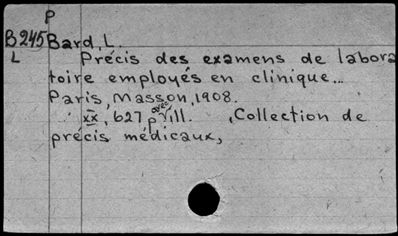 P
B245 Bard, L.
L Précis des examens de labora
toire employés en clinique...
Paris, Masson, 1908.
xx, 627 p avec ill. , Collection de
précis médicaux,